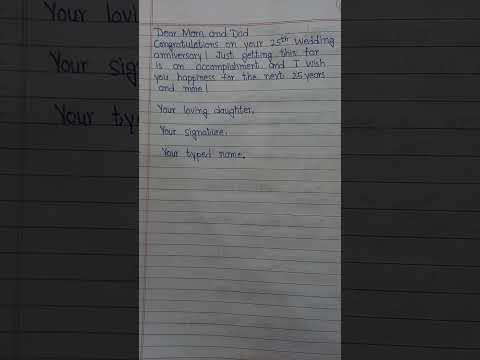 Dear Mom and Dad
Congratulations on your 25th Wedding
anniversary! Just getting this far
is an accomplishment and I wish
you happiness for the next 25 years
and more!
Your loving daughter,
Your signature.
Your typed name.
Your loving
Your signa
Your typ